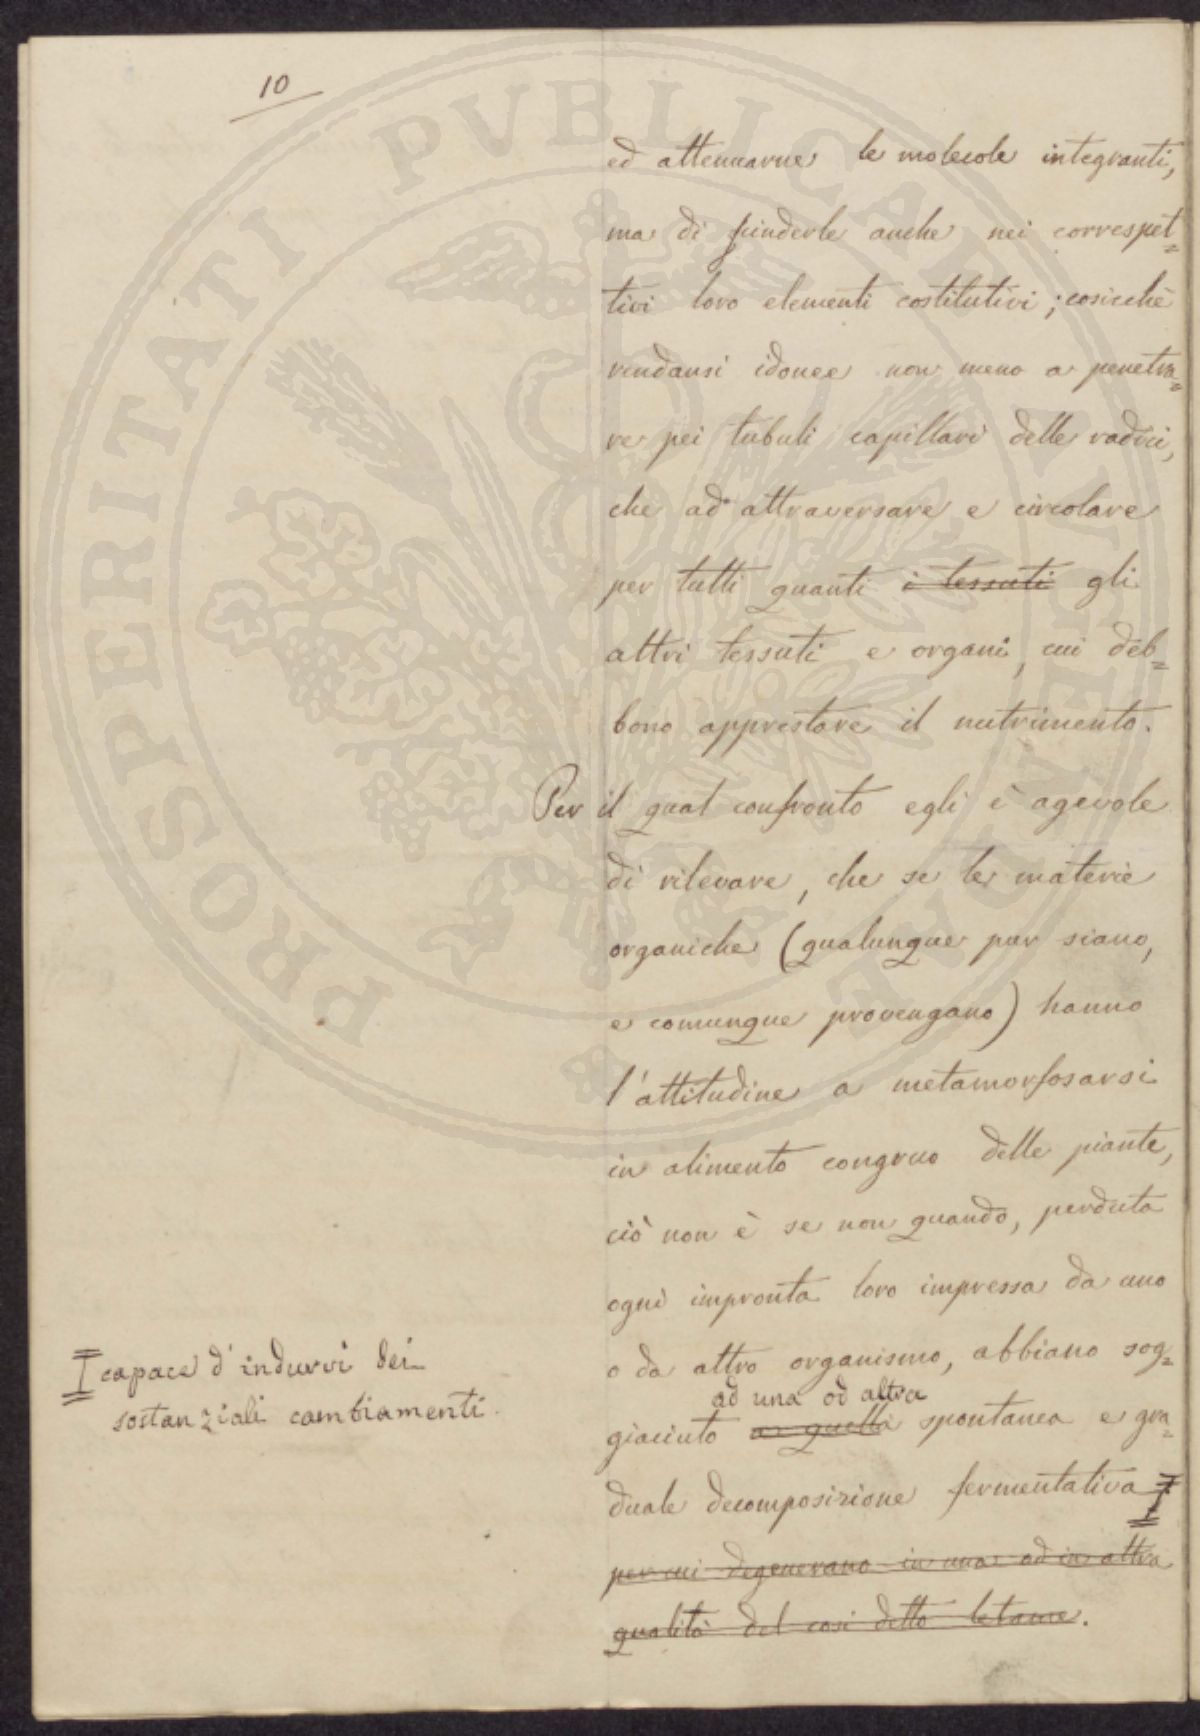 10
ed attenuarne le molecole integranti,
ma di scinderle anche nei correspet=
tivi loro elementi costitutivi; cosicchè
rendansi idonee non meno a penetra=
re pei tubuli capillari delle radici,
che ad attraversare e circolare
per tutti quanti i tessuti gli
altri tessuti e organi, cui deb=
bono apprestare il nutrimento.
Per il qual confronto egli è agevole
di rilevare, che se le materie
organiche (qualunque pur siano,
e comunque provengano) hanno
l'attitudine a metamorfosarsi
in alimento congruo delle piante,
ciò non è se non quando, perduta
ogni impronta loro impressa da uno
o da altro organismo, abbiano sog=
ad una od altra
giaciuto a quella spontanea e gra=
duale decomposizione fermentativa
per cui degenerano in una od in altra
qualità del così detto letame.
capace d'indurvi dei
sostanziali cambiamenti.
PROSPERITATI PUBLICAE AUGENDAE